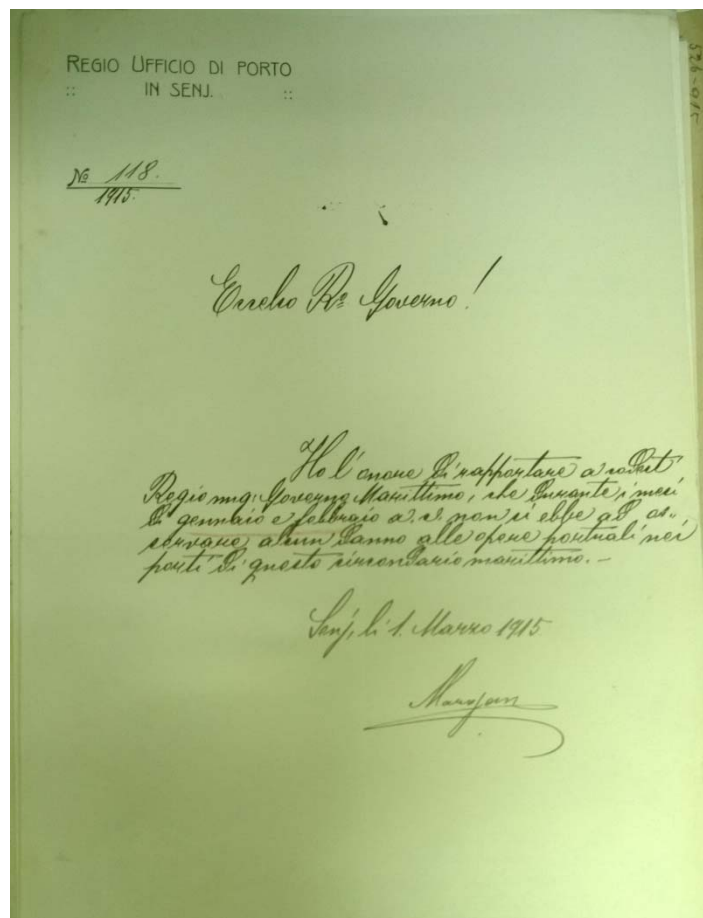 REGIO UFFICIO DI PORTO
:: IN SENJ. ::
526-015
No 118.
1915.
Eccelso Ro Governo!
Ho l'onore di rapportare a codest
Regio ung. Governo Marittimo, che durante i mesi
di gennaio e febbraio a. c. non si ebbe ad os„
servare alcun danno alle opere portuali nei
porti di questo circondario marittimo. –
Senj, li 1. Marzo 1915